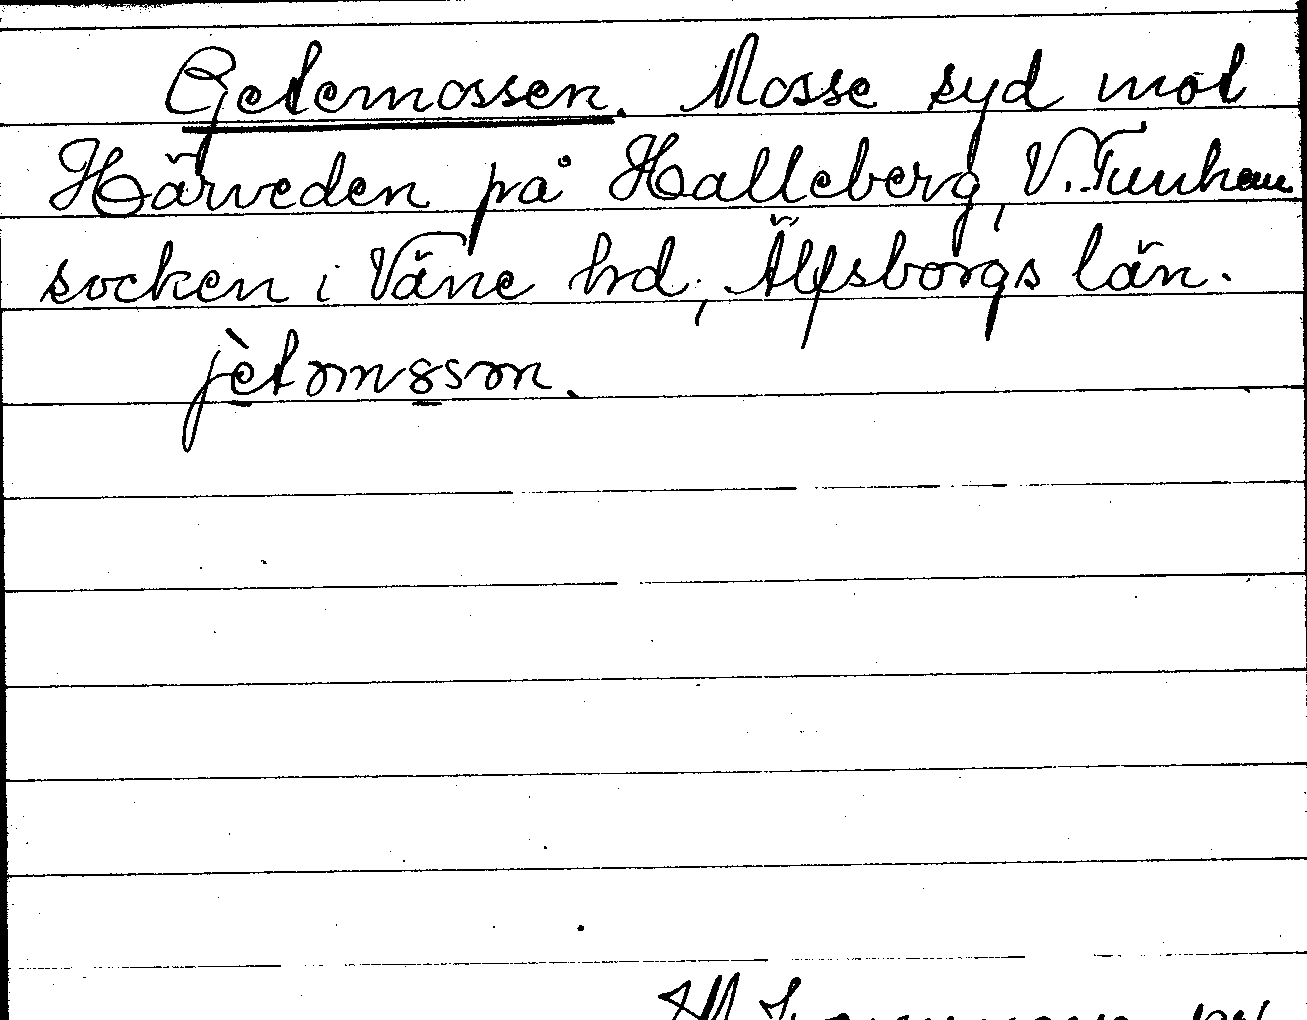 Getemossen. Mosse syd mot
Härveden på Halleberg, V. Tunhem
socken i Väne hd, Älfsborgs län.